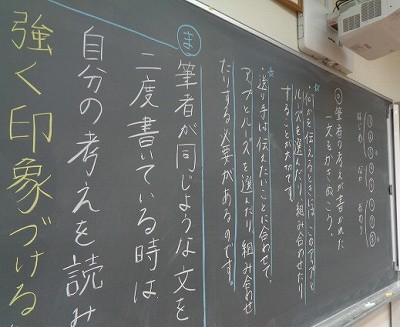 はじめ なか おわり
筆者の考えが書かれた
一文をかきぬこう。
何かを伝えるときには、このアップと
ルーズを選んだり、組み合わせたり
することが大切です。
送り手は伝えたいことに合わせて、
アップとルーズを選んだり、組み合わせ
たりする必要があるのです。
ま 筆者が同じような文を
二度書いている時は
自分の考えを読み
強く印象づける